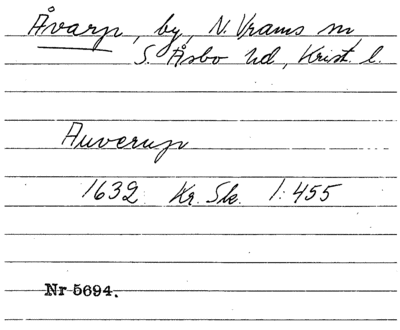 Åvarp, by, N. Vrams sn,
S. Åsbo hd, Krist. l.
Auverup
1632 Kr. Sk. 1:455
Nr 5694.